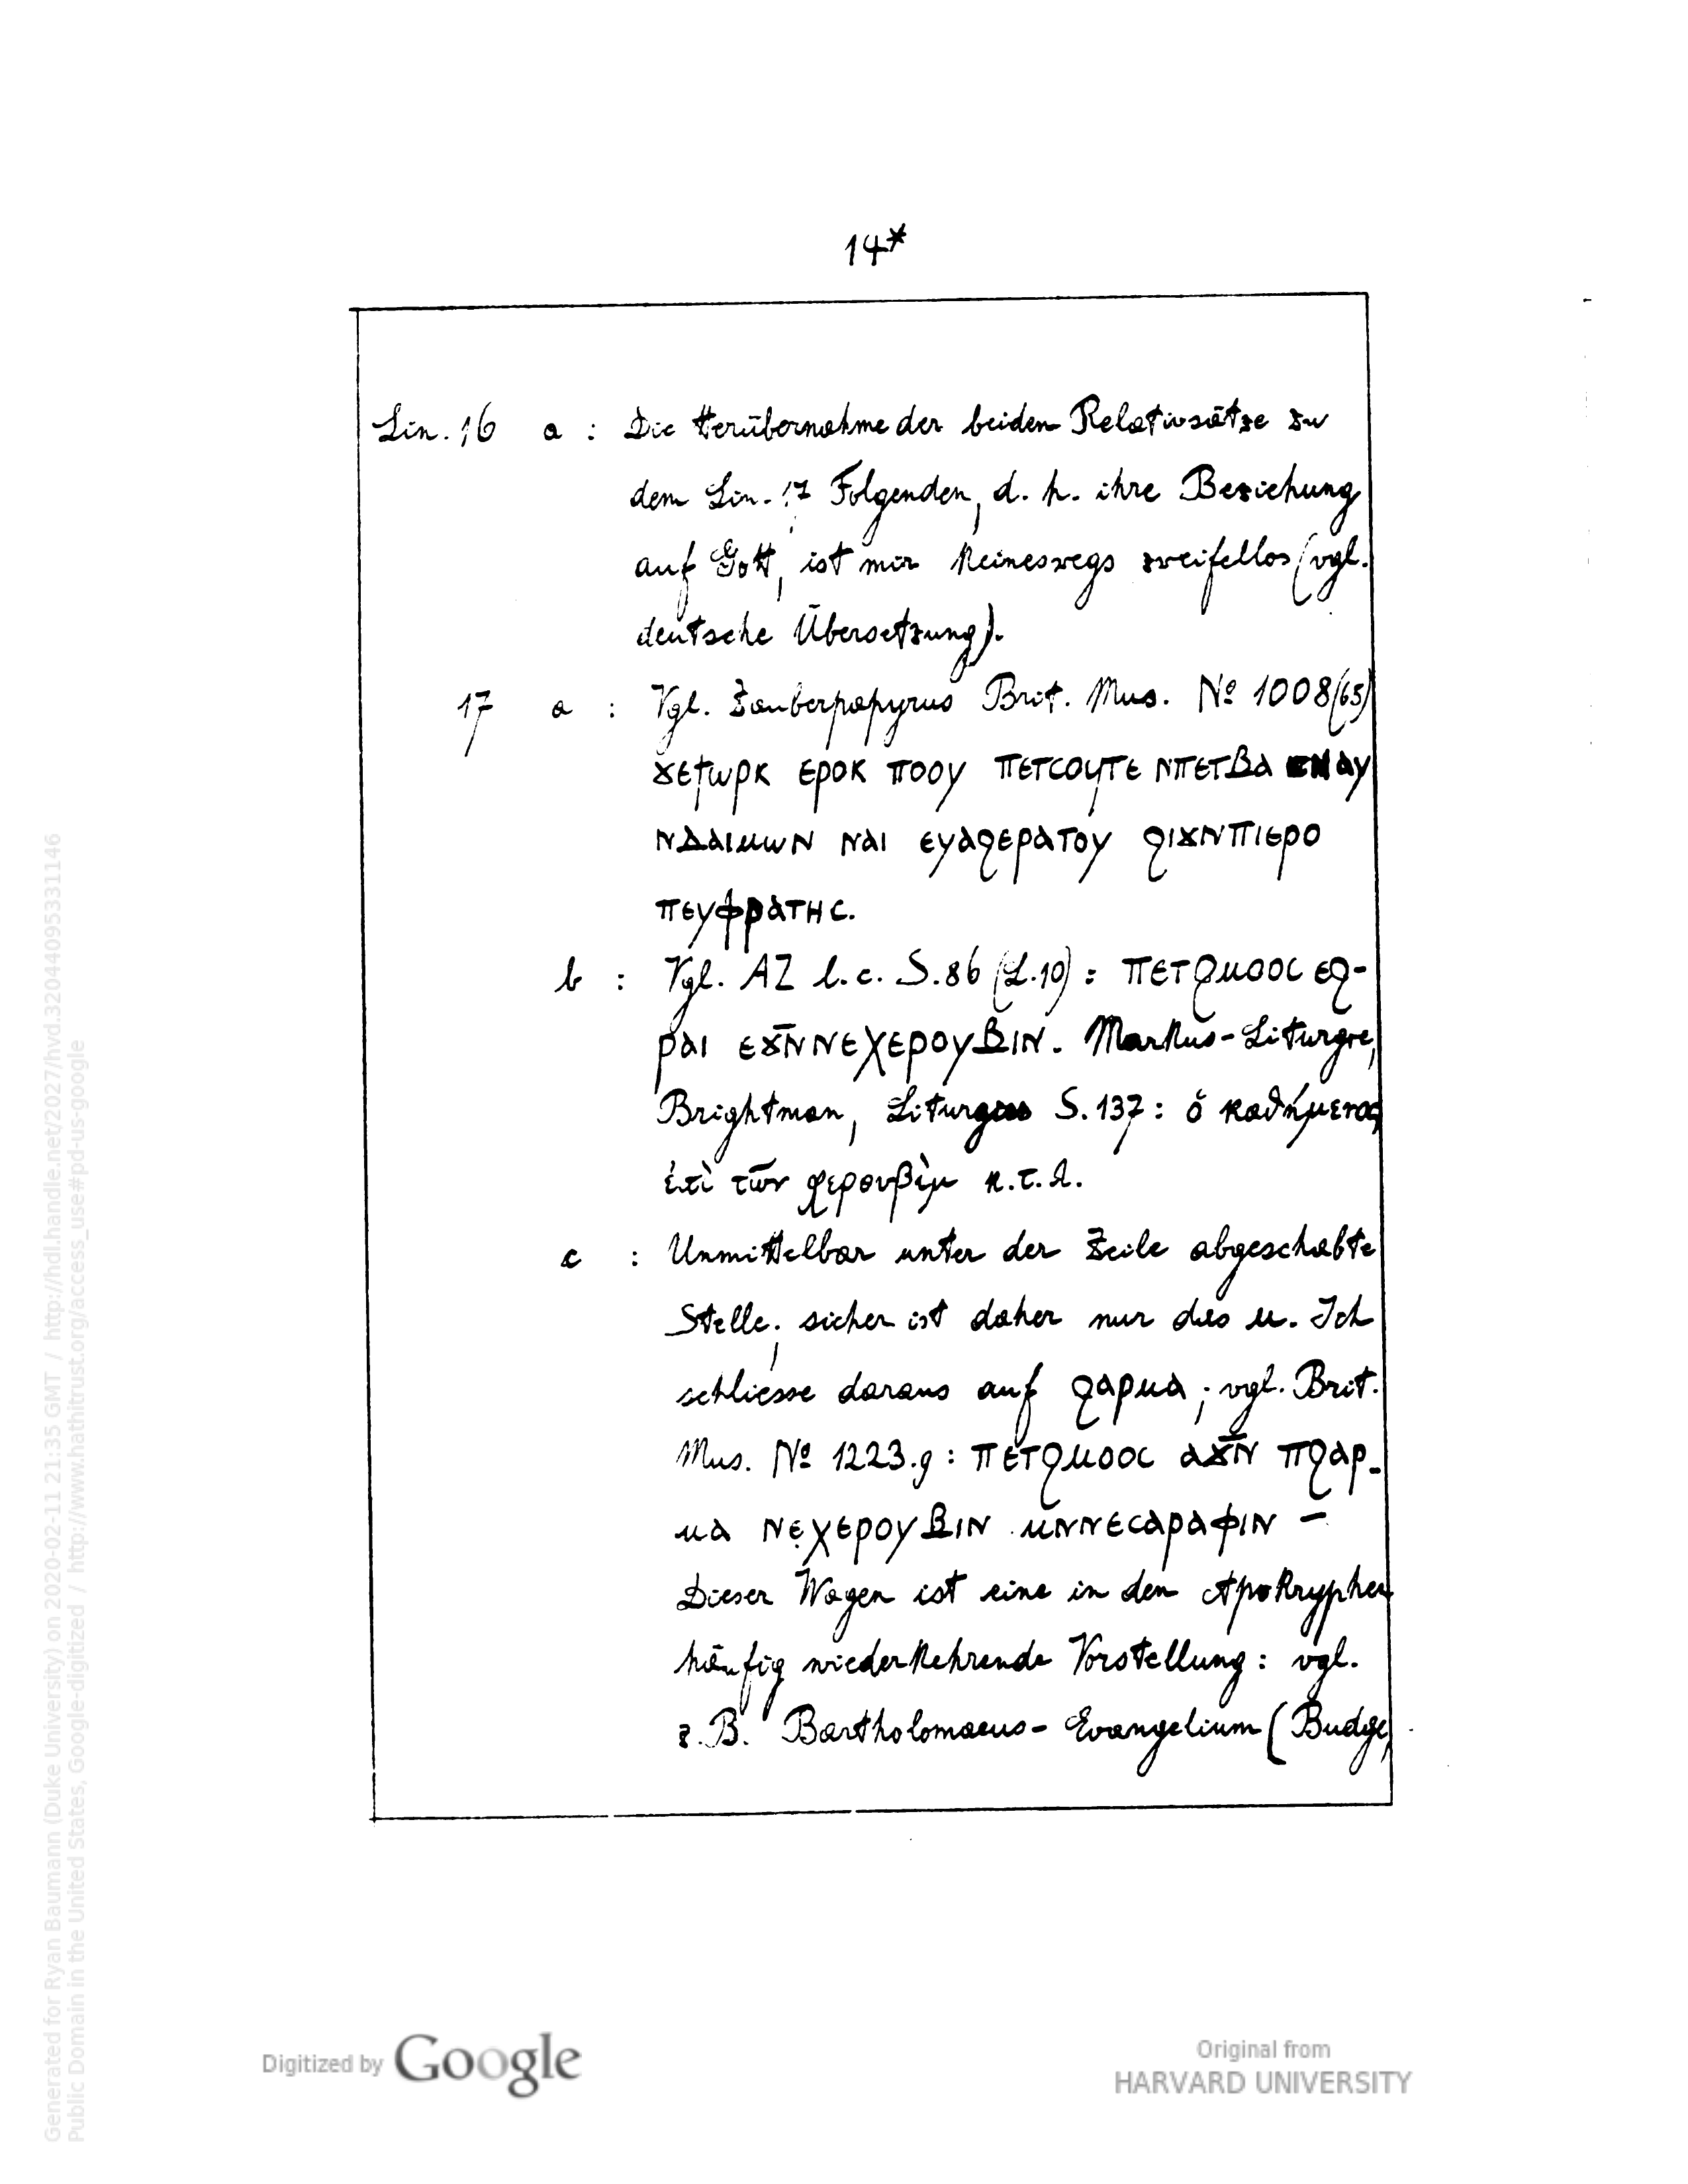 14*
Lin. 16 a : Die Herübernahme der beiden Relativsätze zu
dem Lin. 17 Folgenden, d. h. ihre Beziehung
auf Gott, ist mir keineswegs zweifellos (vgl.
deutsche Übersetzung).
17 a : Vgl. Zauberpapyrus Brit. Mus. Nº 1008 (65)
ϫⲉϯⲱⲣⲕ ⲉⲣⲟⲕ ⲡⲟⲟⲩ ⲡⲉⲧⲥⲟⲩⲧⲉ ⲛⲡⲉⲧⲃⲁ ⲉⲛⲁⲩ
ⲛⲇⲁⲓⲙⲱⲛ ⲛⲁⲓ ⲉⲩⲁϩⲉⲣⲁⲧⲟⲩ ϩⲓϫⲛⲡⲓⲉⲣⲟ
ⲡⲉⲩⲫⲣⲁⲧⲏⲥ.
b : Vgl. AZ l. c. S. 86 (L. 10) : ⲡⲉⲧϩⲙⲟⲟⲥ ⲉϩ-
ⲣⲁⲓ ⲉϫⲛ̅ⲛⲉⲭⲉⲣⲟⲩⲃⲓⲛ. Markus-Liturgie,
Brightman, Liturgies S. 137 : ὁ καθήμενος
ἐπὶ τῶν χερουβὶμ κ.τ.λ.
c : Unmittelbar unter der Zeile abgeschabte
Stelle; sicher ist daher nur das ⲙ. Ich
schliesse daraus auf ϩⲁⲣⲙⲁ; vgl. Brit.
Mus. Nº 1223.g : ⲡⲉⲧϩⲙⲟⲟⲥ ⲁϫⲛ̅ ⲡϩⲁⲣ-
ⲙⲁ ⲛⲉ̣ⲭⲉⲣⲟⲩⲃⲓⲛ ⲙⲛⲛⲉⲥⲁⲣⲁⲫⲓⲛ —
Dieser Wagen ist eine in den Apokryphen
häufig wiederkehrende Vorstellung : vgl.
z. B. Bartholomaeus-Evangelium (Budge,
Generated for Ryan Baumann (Duke University) on 2020-02-11 21:35 GMT / http://hdl.handle.net/2027/hvd.32044095331146
Public Domain in the United States, Google-digitized / http://www.hathitrust.org/access_use#pd-us-google
Digitized by Google
Original from
HARVARD UNIVERSITY